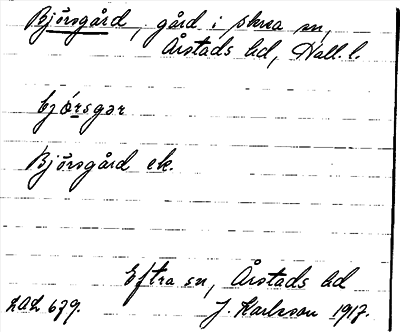 Björsgård, gård i Skrea sn,
Årstads hd, Hall. l.
bjórsgər
Björsgård ek.
Eftra sn, Årstads hd
LAL 679. J. Karlsson 1917.